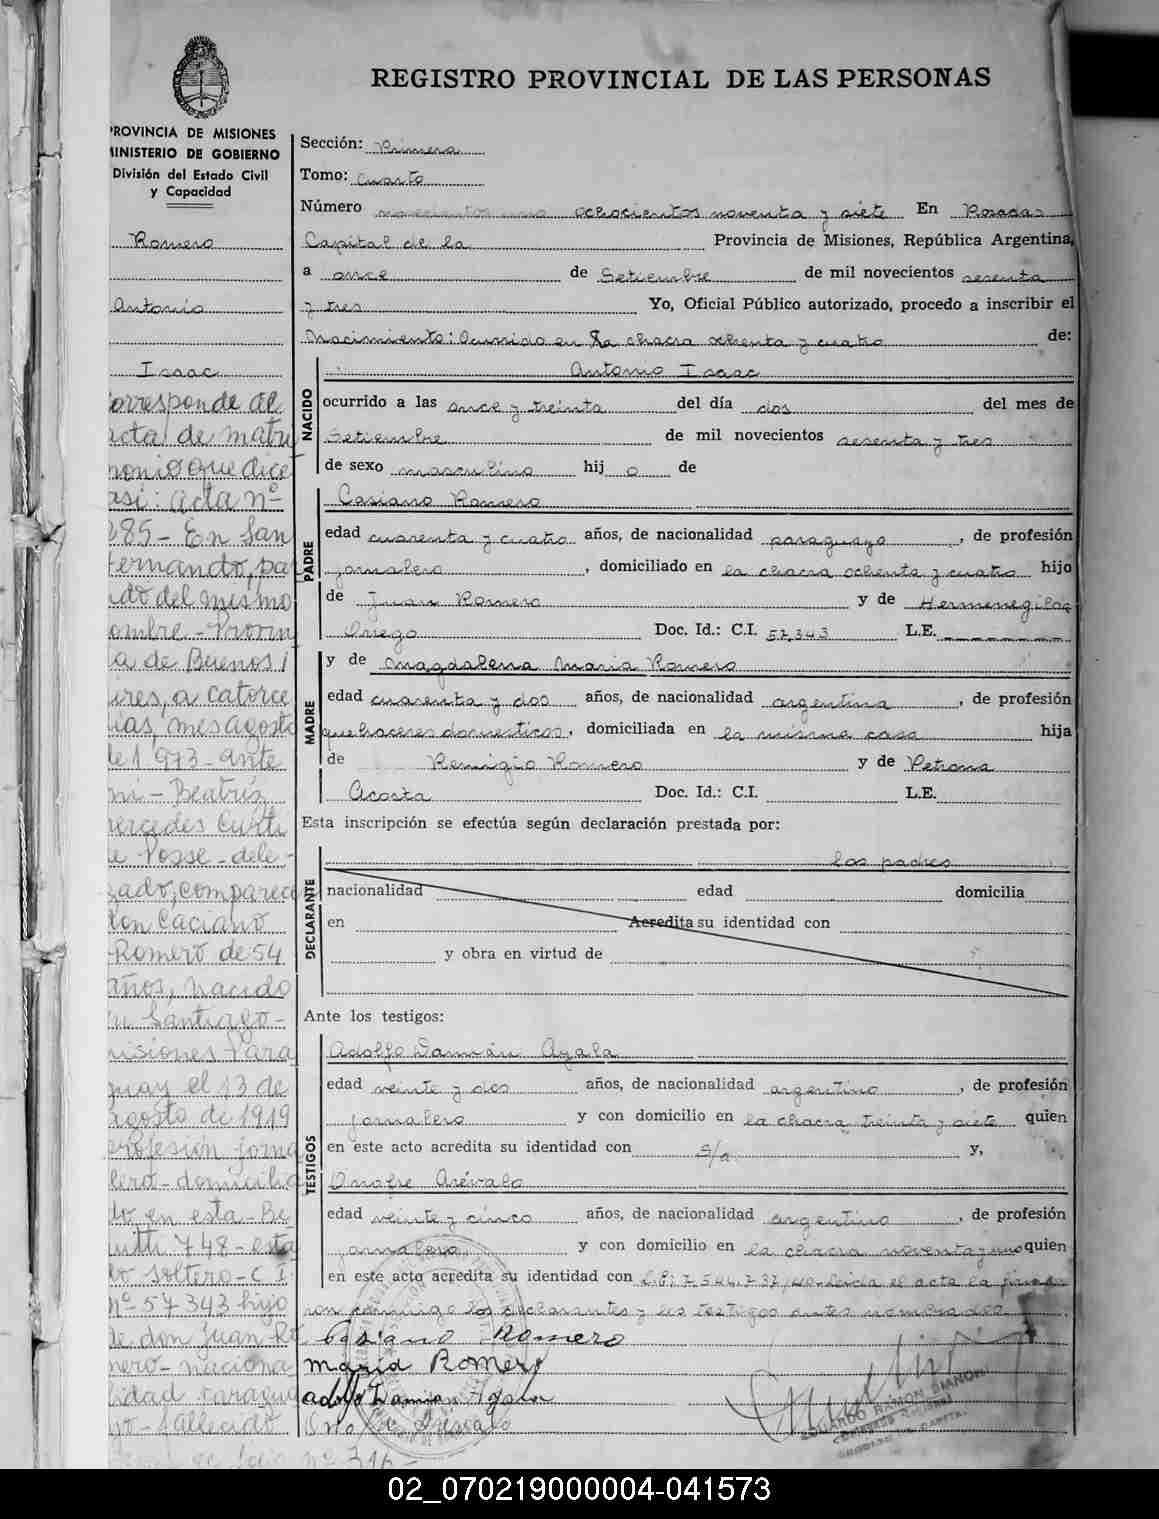 REGISTRO PROVINCIAL DE LAS PERSONAS
PROVINCIA DE MISIONES
MINISTERIO DE GOBIERNO
División del Estado Civil
y Capacidad
Romero
Antonio
Isaac
corresponde al
acta de matri
monio que dice
asi: acta nº
285 - En San
Fernando, par
tido del mismo
nombre - Provin
cia de Buenos A
ires, a catorce
dias, mes agosto
de 1973 - ante
mi - Beatríz
Mercedes Curti
de Posse - dele-
gado, comparece
don Caciano
Romero de 54
años, nacido
en Santiago -
Misiones Para
guay el 13 de
agosto de 1919
profesión jorna
lero - domicilia
do en esta - Be
rutti 748 - esta
do soltero - C.I.
Nº 57343 hijo
de don Juan Ro
mero - naciona
lidad Paragua
yo - fallecido
Sección: Primera
Tomo: Cuarto
Número ochocientos noventa y siete En Posadas
Capital de la Provincia de Misiones, República Argentina,
a once de Setiembre de mil novecientos sesenta
y tres Yo, Oficial Público autorizado, procedo a inscribir el
Nacimiento: Ocurrido en la chacra ochenta y cuatro de:
NACIDO
Antonio Isaac
ocurrido a las once y treinta del día dos del mes de
Setiembre de mil novecientos sesenta y tres
de sexo masculino hijo de
PADRE
Casiano Romero
edad cuarenta y cuatro años, de nacionalidad paraguayo, de profesión
jornalero, domiciliado en la chacra ochenta y cuatro hijo
de Juan Romero y de Hermenegilda
Orrego Doc. Id.: C.I. 57,343 L.E. --------
MADRE
y de Magdalena Maria Romero
edad cuarenta y dos años, de nacionalidad argentina, de profesión
quehaceres domesticos, domiciliada en la misma casa hija
de Remigio Romero y de Petrona
Acosta Doc. Id.: C.I. L.E.
Esta inscripción se efectúa según declaración prestada por:
DECLARANTE
los padres
nacionalidad edad domicilia
en Acredita su identidad con
y obra en virtud de
Ante los testigos:
TESTIGOS
Adolfo Damián Ayala
edad veinte y dos años, de nacionalidad argentino, de profesión
jornalero y con domicilio en la chacra treinta y siete quien
en este acto acredita su identidad con s/a y,
Onofre Arévalo
edad veinte y cinco años, de nacionalidad argentino, de profesión
jornalero y con domicilio en la chacra noventa y uno quien
en este acto acredita su identidad con Leida el acta la firma
ron conmigo los declarantes y los testigos antes nombrados.
Casiano Romero
Maria Romero
Adolfo Damian Ayala
Onofre Arevalo
EDUARDO RAMON
02_070219000004-041573